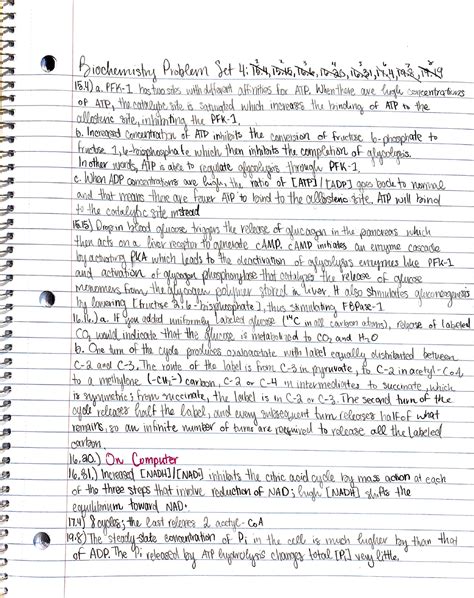 Biochemistry Problem Set 4: 15.4, 15.15, 16.16, 16.20, 16.31, 17.4, 19.8, 17.19
15.4) a. PFK-1 has two sites with different affinities for ATP. When there are high concentrations
of ATP, the catalytic site is saturated which increases the binding of ATP to the
allosteric site, inhibiting the PFK-1.
b. Increased concentration of ATP inhibits the conversion of fructose 6-phosphate to
fructose 1,6-bisphosphate which then inhibits the completion of glycolysis.
In other words, ATP is able to regulate glycolysis through PFK-1.
c. When ADP concentrations are high, the ratio of [ATP]/[ADP] goes back to normal
and that means there are fewer ATP to bind to the allosteric site. ATP will bind
to the catalytic site instead
15.15) Drop in blood glucose triggers the release of glucagon in the pancreas which
then acts on a liver receptor to generate cAMP. cAMP initiates an enzyme cascade
by activating PKA which leads to the deactivation of glycolysis enzymes like PFK-1
and activation of glycogen phosphorylase that catalyzes the release of glucose
monomers from the glycogen polymer stored in liver. It also stimulates gluconeogenesis
by lowering [fructose 2,6-bisphosphate], thus stimulating FBPase-1
16.16.) a. If you added uniformly labeled glucose (¹⁴C in all carbon atoms), release of labeled
CO₂ would indicate that the glucose is metabolized to CO₂ and H₂O
b. One turn of the cycle produces oxaloacetate with label equally distributed between
C-2 and C-3. The route of the label is from C-3 in pyruvate, to C-2 in acetyl-CoA
to a methylene (-CH₂-) carbon, C-2 or C-4 in intermediates to succinate, which
is symmetric; from succinate, the label is in C-2 or C-3. The second turn of the
cycle releases half the label, and every subsequent turn releases half of what
remains, so an infinite number of turns are required to release all the labeled
carbon.
16.20.) On Computer
16.31.) Increased [NADH]/[NAD⁺] inhibits the citric acid cycle by mass action at each
of the three steps that involve reduction of NAD⁺; high [NADH] shifts the
equilibrium toward NAD⁺.
17.4) 8 cycles; the last release 2 acetyl-CoA
19.8) The steady-state concentration of Pi in the cell is much higher by than that
of ADP. The Pi released by ATP hydrolysis changes total [Pi] very little.